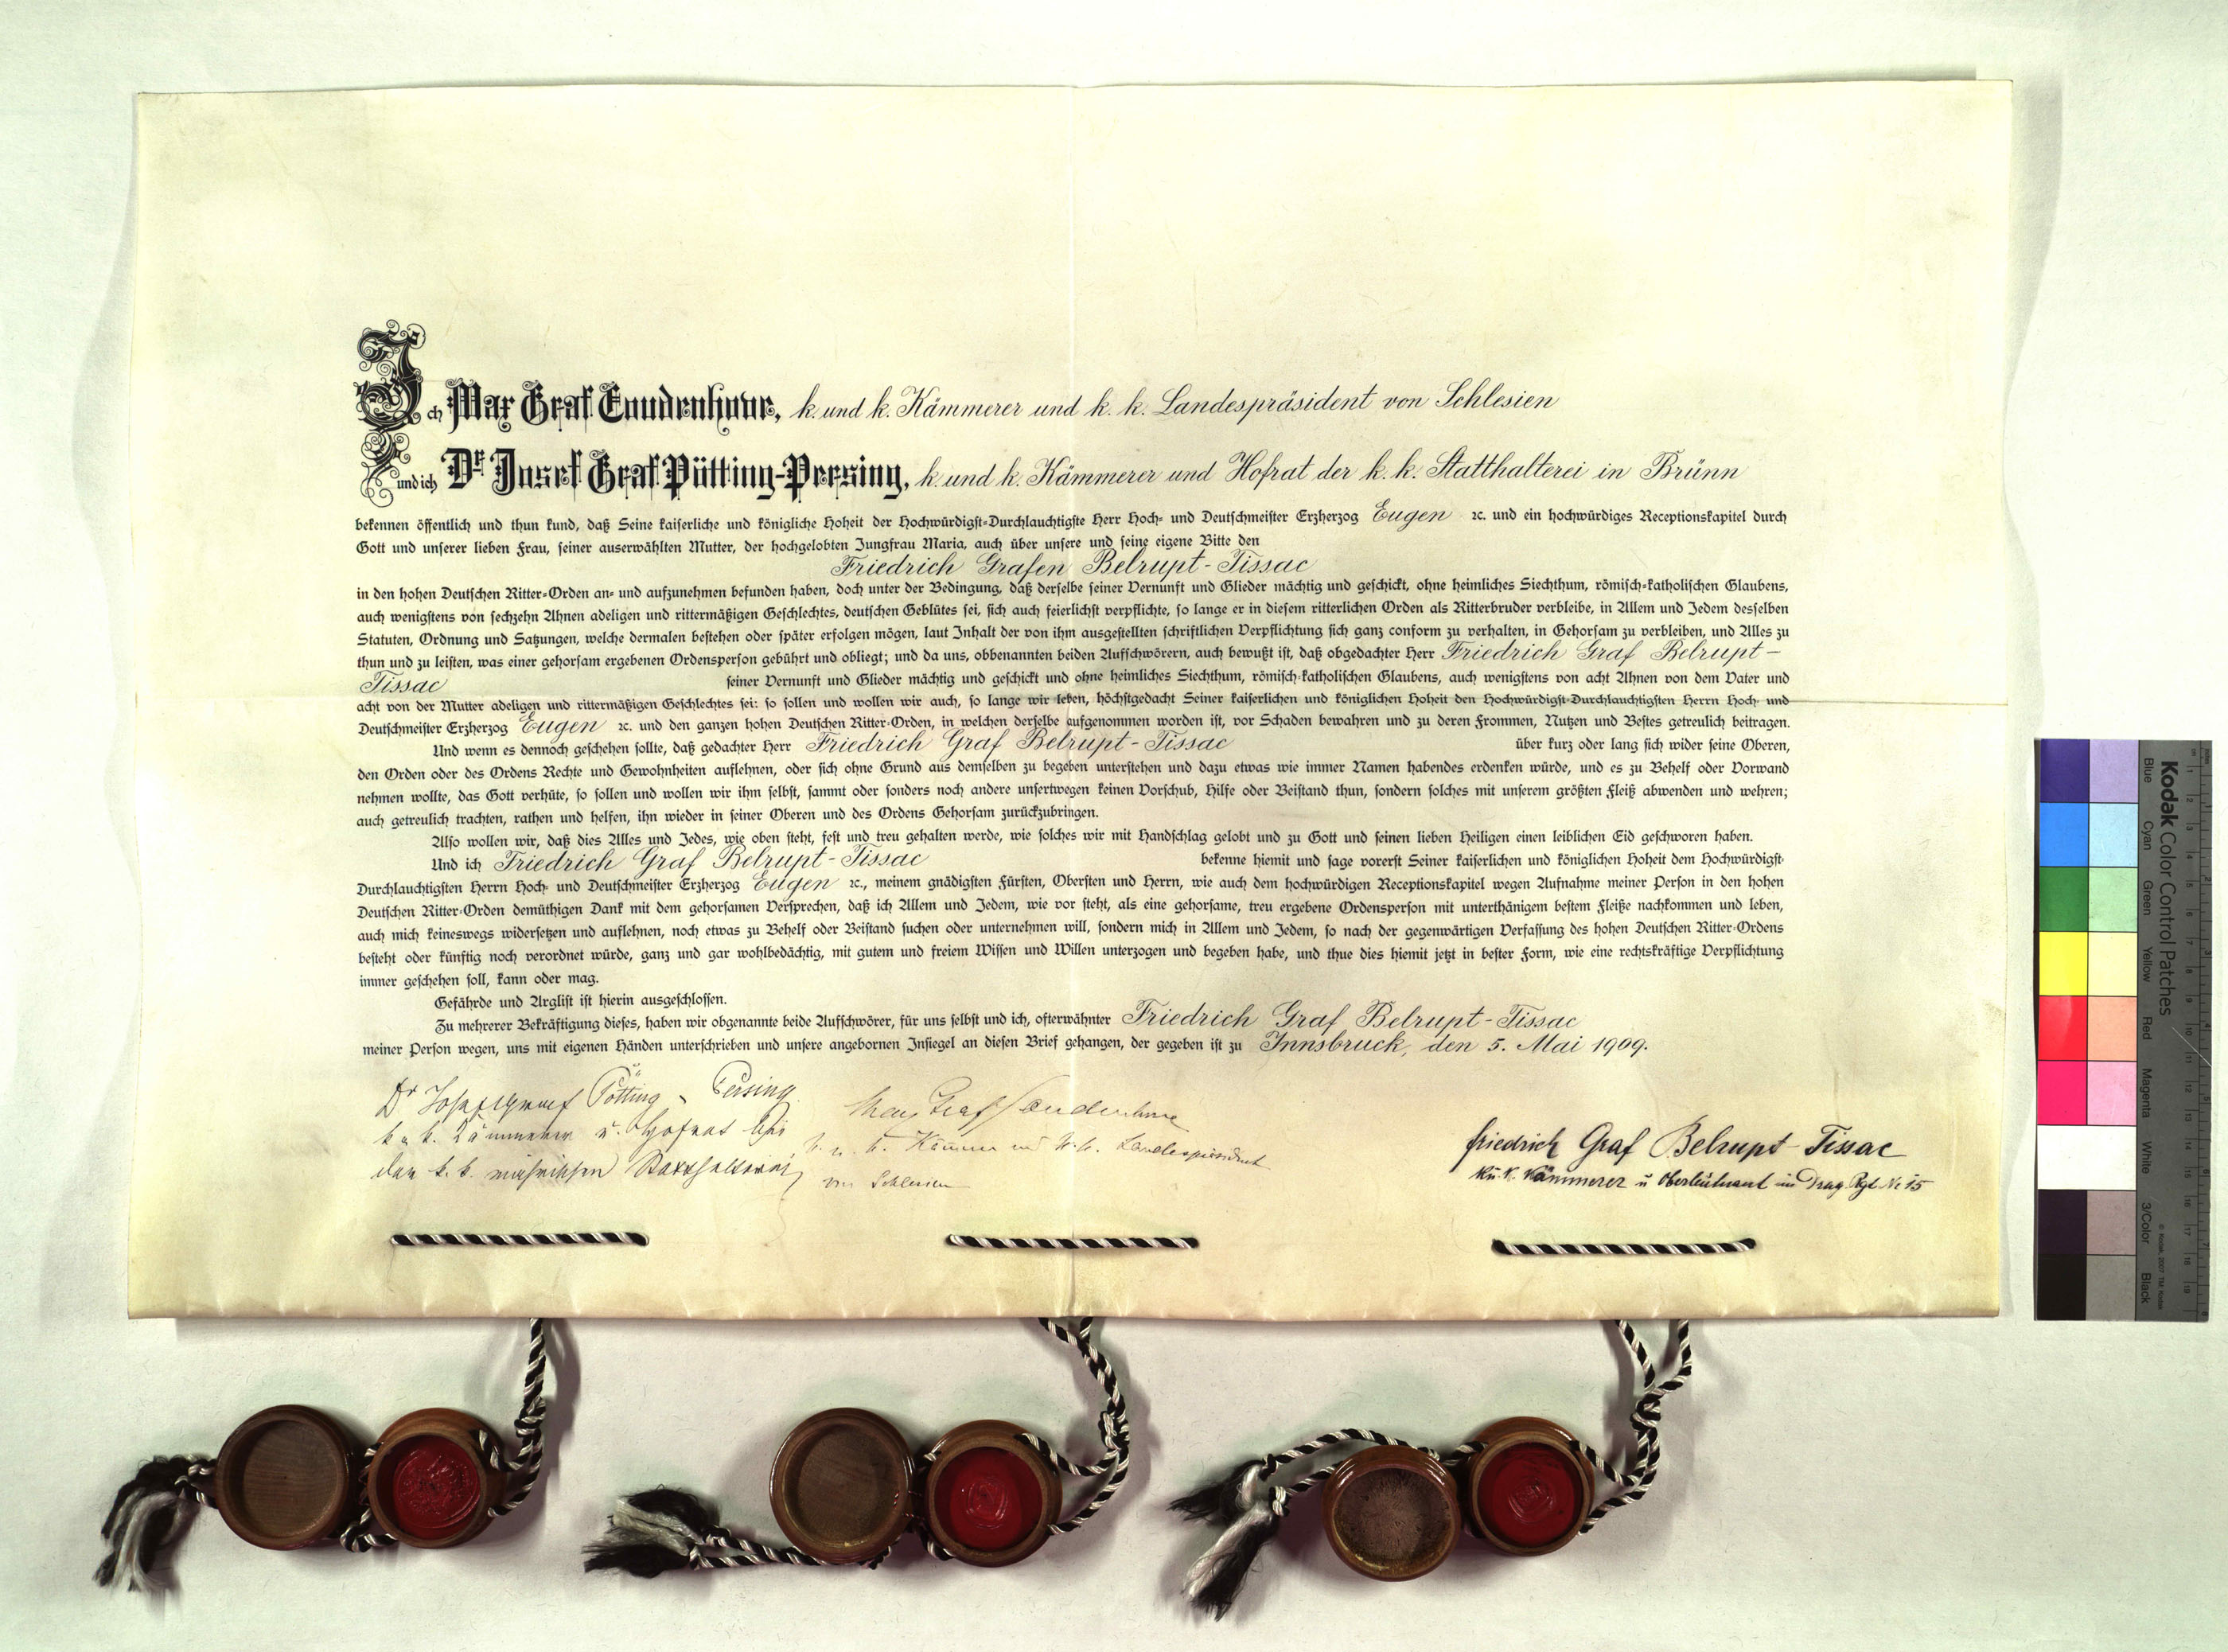 Ich Max Graf Coudenhove, k. und k. Kämmerer und k. k. Landespräsident von Schlesien
und ich Dr Josef Graf Pötting-Persing, k. und k. Kämmerer und Hofrat der k. k. Statthalterei in Brünn
bekennen öffentlich und thun kund, daß Seine kaiserliche und königliche Hoheit der Hochwürdigst-Durchlauchtigste Herr Hoch- und Deutschmeister Erzherzog Eugen ꝛc. und ein hochwürdiges Receptionskapitel durch
Gott und unserer lieben Frau, seiner auserwählten Mutter, der hochgelobten Jungfrau Maria, auch über unsere und seine eigene Bitte den
Friedrich Grafen Belrupt-Tissac
in den hohen Deutschen Ritter-Orden an- und aufzunehmen befunden haben, doch unter der Bedingung, daß derselbe seiner Vernunft und Glieder mächtig und geschickt, ohne heimliches Siechthum, römisch-katholischen Glaubens,
auch wenigstens von sechzehn Ahnen adeligen und rittermäßigen Geschlechtes, deutschen Geblütes sei, sich auch feierlichst verpflichte, so lange er in diesem ritterlichen Orden als Ritterbruder verbleibe, in Allem und Jedem desselben
Statuten, Ordnung und Satzungen, welche dermalen bestehen oder später erfolgen mögen, laut Inhalt der von ihm ausgestellten schriftlichen Verpflichtung sich ganz conform zu verhalten, in Gehorsam zu verbleiben, und Alles zu
thun und zu leisten, was einer gehorsam ergebenen Ordensperson gebührt und obliegt; und da uns, obbenannten beiden Aufschwörern, auch bewußt ist, daß obgedachter Herr Friedrich Graf Belrupt-
Tissac seiner Vernunft und Glieder mächtig und geschickt und ohne heimliches Siechthum, römisch-katholischen Glaubens, auch wenigstens von acht Ahnen von dem Vater und
acht von der Mutter adeligen und rittermäßigen Geschlechtes sei: so sollen und wollen wir auch, so lange wir leben, höchstgedacht Seiner kaiserlichen und königlichen Hoheit den Hochwürdigst-Durchlauchtigsten Herrn Hoch- und
Deutschmeister Erzherzog Eugen ꝛc. und den ganzen hohen Deutschen Ritter-Orden, in welchen derselbe aufgenommen worden ist, vor Schaden bewahren und zu deren Frommen, Nutzen und Bestes getreulich beitragen.
Und wenn es dennoch geschehen sollte, daß gedachter Herr Friedrich Graf Belrupt-Tissac über kurz oder lang sich wider seine Oberen,
den Orden oder des Ordens Rechte und Gewohnheiten auflehnen, oder sich ohne Grund aus demselben zu begeben unterstehen und dazu etwas wie immer Namen habendes erdenken würde, und es zu Behelf oder Vorwand
nehmen wollte, das Gott verhüte, so sollen und wollen wir ihm selbst, sammt oder sonders noch andere unsertwegen keinen Vorschub, Hilfe oder Beistand thun, sondern solches mit unserem größten Fleiß abwenden und wehren;
auch getreulich trachten, rathen und helfen, ihn wieder in seiner Oberen und des Ordens Gehorsam zurückzubringen.
Also wollen wir, daß dies Alles und Jedes, wie oben steht, fest und treu gehalten werde, wie solches wir mit Handschlag gelobt und zu Gott und seinen lieben Heiligen einen leiblichen Eid geschworen haben.
Und ich Friedrich Graf Belrupt-Tissac bekenne hiemit und sage vorerst Seiner kaiserlichen und königlichen Hoheit dem Hochwürdigst-
Durchlauchtigsten Herrn Hoch- und Deutschmeister Erzherzog Eugen ꝛc., meinem gnädigsten Fürsten, Obersten und Herrn, wie auch dem hochwürdigen Receptionskapitel wegen Aufnahme meiner Person in den hohen
Deutschen Ritter-Orden demüthigen Dank mit dem gehorsamen Versprechen, daß ich Allem und Jedem, wie vor steht, als eine gehorsame, treu ergebene Ordensperson mit unterthänigem bestem Fleiße nachkommen und leben,
auch mich keineswegs widersetzen und auflehnen, noch etwas zu Behelf oder Beistand suchen oder unternehmen will, sondern mich in Allem und Jedem, so nach der gegenwärtigen Verfassung des hohen Deutschen Ritter-Ordens
besteht oder künftig noch verordnet würde, ganz und gar wohlbedächtig, mit gutem und freiem Wissen und Willen unterzogen und begeben habe, und thue dies hiemit jetzt in bester Form, wie eine rechtskräftige Verpflichtung
immer geschehen soll, kann oder mag.
Gefährde und Arglist ist hierin ausgeschlossen.
Zu mehrerer Bekräftigung dieses, haben wir obgenannte beide Aufschwörer, für uns selbst und ich, ofterwähnter Friedrich Graf Belrupt-Tissac
meiner Person wegen, uns mit eigenen Händen unterschrieben und unsere angebornen Insiegel an diesen Brief gehangen, der gegeben ist zu Innsbruck, den 5. Mai 1909.
Dr Josef Graf Pötting-Persing
k. u. k. Kämmerer u. Hofrat bei
der k. k. mährischen Statthalterei
Max Graf Coudenhove
k. u. k. Kämmerer und k. k. Landespräsident
von Schlesien
Friedrich Graf Belrupt-Tissac
k. u. k. Kämmerer u Oberleutnant im Drag. Rgt. Nr 15
Kodak Color Control Patches
Blue Cyan Green Yellow Red Magenta White 3/Color Black
© Kodak, 2007 TM: Kodak